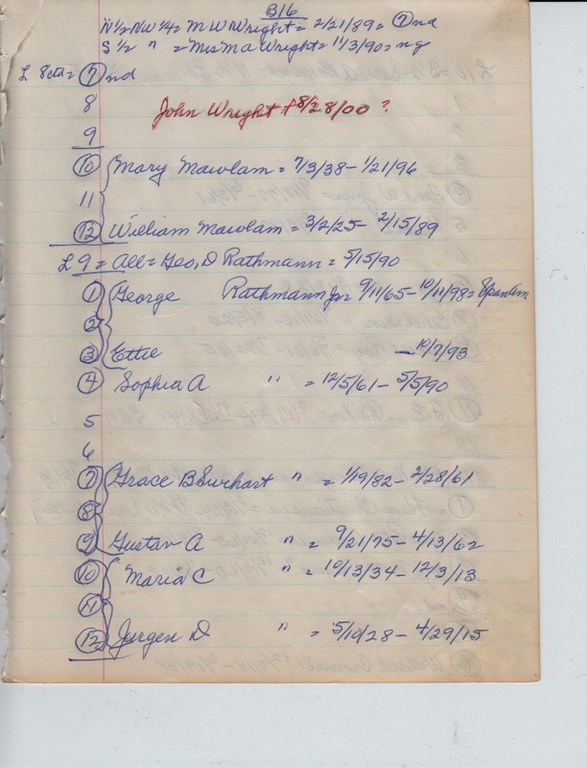 B16
N 1/2 NW 1/4 = M W Wright = 2/21/89 = 7 nd
S 1/2 " = Mrs M a Wright = 11/3/90 = ng
L 8 = 7 nd
8 John Wright + 8/28/00 ?
9
10 Mary Mawlam = 7/3/38 - 1/21/96
11
12 William Mawlam = 3/2/25 - 2/15/89
L 9 = All = Geo, D Rathmann = 5/15/90
1 George Rathmann Jr 9/11/65 - 10/11/98 = Span Am
2
3 Ettie - 10/7/93
4 Sophia A " = 12/5/61 - 5/5/90
5
6
7 Grace B Swhart " = 1/19/82 - 2/28/61
8
9 Gustav A " = 9/21/75 - 4/13/62
10 Maria C " = 10/13/34 - 12/3/13
11
12 Jurgen D " = 5/10/28 - 4/29/15